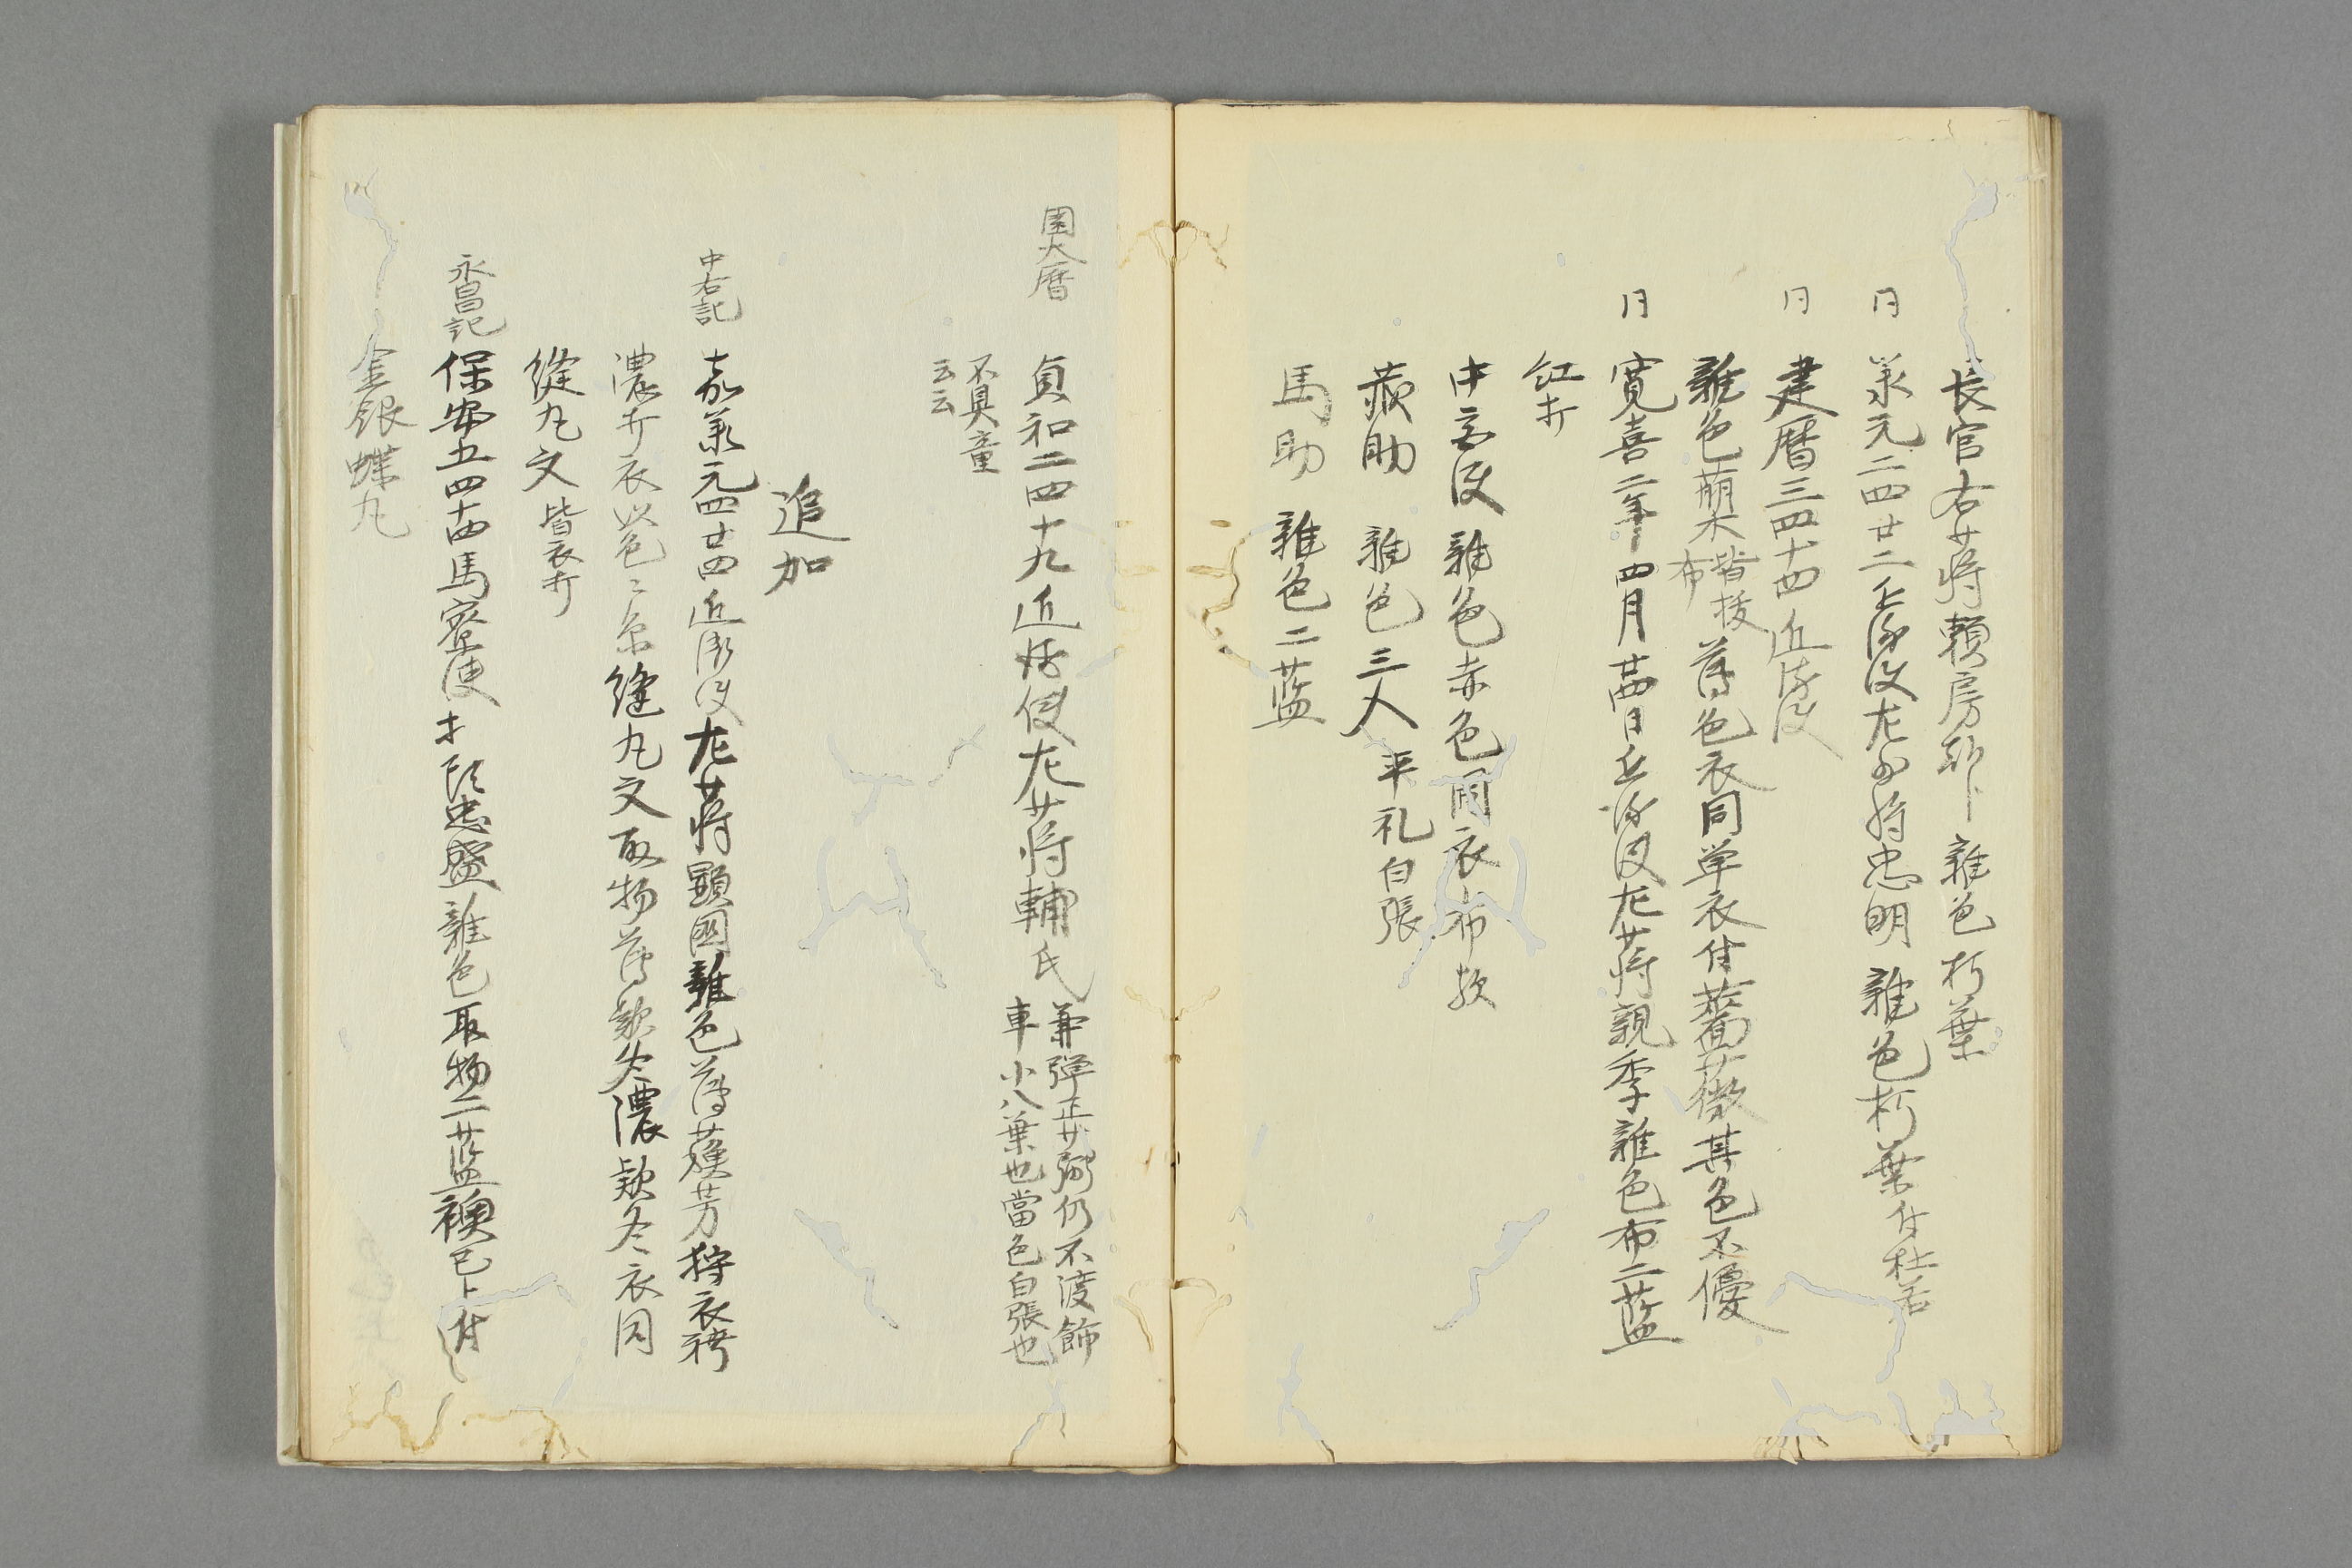 長官右少将頼房朝臣 雑色朽葉
同 承元二四廿二近衛使左少将忠明 雑色朽葉付杜若
同 建暦三四十四近衛使
雑色萠木 皆授布 薄色衣同単衣付薔薇其色不優
同 寛喜二年四月廿四日近衛使左少将親季雑色布二藍
紅打
中宮使 雑色赤色同衣布歟
蔵助 雑色三人 平礼白張
馬助 雑色二藍
園太暦 貞和二四十九近衛使左少将輔氏 兼弾正少弼仍不渡飾
車小八葉也當色白張也
不具童
云云
追加
中右記 嘉承元四廿四近衛使左少将顕国雑色薄蘇芳狩衣袴
濃打衣 縫丸文取物薄款冬濃款冬衣同
縫丸文 皆衣打
永昌記 保安五四十四馬寮使 忠盛雑色取物二藍襖已上付
金銀蝶丸